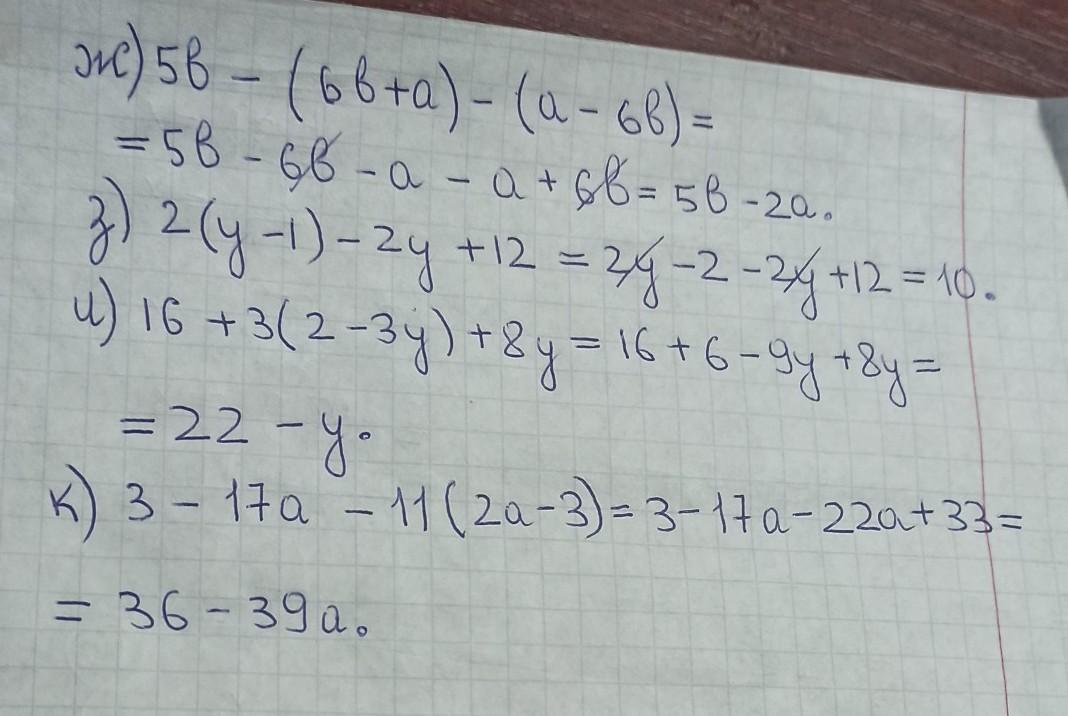 ж) 5в - (6в+а) - (а - 6в) =
= 5в - 6в - а - а + 6в = 5в - 2а.
з) 2(y - 1) - 2y + 12 = 2y - 2 - 2y + 12 = 10.
и) 16 + 3(2 - 3y) + 8y = 16 + 6 - 9y + 8y =
= 22 - y.
к) 3 - 17а - 11(2а - 3) = 3 - 17а - 22а + 33 =
= 36 - 39а.